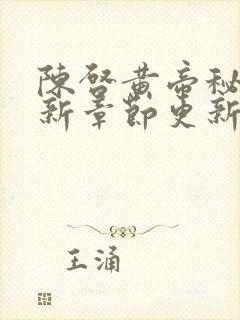 陳啓黄帝秘
新章節更新
王涌